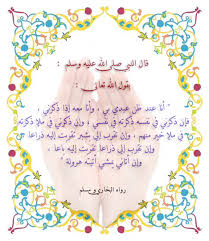 قال النبي صلى الله عليه وسلم :
يقول الله تعالى :
" أنا عند ظن عبدي بي ، وأنا معه إذا ذكرني ،
فإن ذكرني في نفسه ذكرته في نفسي ، وإن ذكرني في ملإ ذكرته
في ملإ خير منهم ، وإن تقرب إلي بشبر تقربت إليه ذراعا ،
وإن تقرب إلي ذراعا تقربت إليه باعا ،
وإن أتاني يمشي أتيته هرولة "
رواه البخاري و مسلم